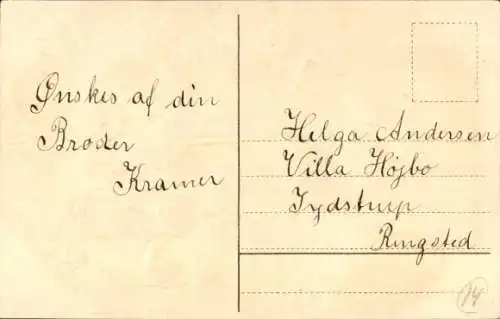 Ønskes af din
Broder
Kramer
Helga Andersen
Villa Højbo
Tydstrup
Ringsted
14